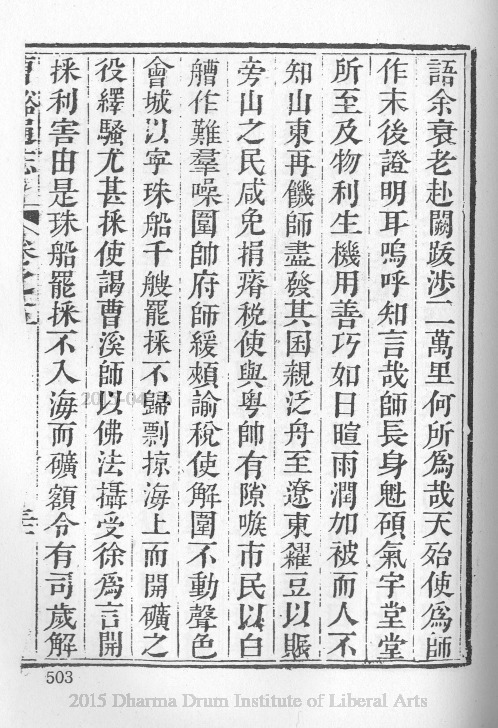 語余衰老赴闕跋涉二萬里何所爲哉天殆使爲師
作末後證明耳嗚呼知言哉師長身魁碩氣宇堂堂
所至及物利生機用善巧如日暄雨潤加被而人不
知山東再饑師盡發其囷親泛舟至遼東糴豆以賑
旁山之民咸免捐瘠稅使與粵帥有隙嗾市民以白
艚作難羣噪圍帥府師緩頰諭稅使解圍不動聲色
會城以寧珠船千艘罷採不歸剽掠海上而開礦之
役繹騷尤甚採使謁曹溪師以佛法攝受徐爲言開
採利害由是珠船罷採不入海而礦額令有司歲解
503
2015 Dharma Drum Institute of Liberal Arts